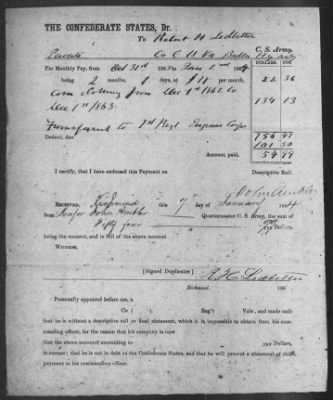 THE CONFEDERATE STATES, Dr.
To Robert H Ledbetter
C. S. Army.
Private Co C 11 Va Batln
For Monthly Pay, from Oct 31st 186 to Jan 2nd 1864
DOLLARS. CTS.
being 2 months, days, at $11 per month, 22 36
Com clothing from Dec 1st 1862 to 134 13
Dec 1st 1863
Transferred to 2nd Regt Engineer Corps
Deduct, due
156 49
101 50
Amount paid, 54 99
I certify, that I have endorsed this Payment on Descriptive Roll.
John Ambler
RECEIVED, Richmond this 7 day of January 1864
from Major John Ambler Quartermaster C. S. Army, the sum of
Fifty four 99/100 Dollars,
being the amount, and in full of the above account
WITNESS.
[Signed Duplicates] R H Ledbetter
Richmond, 186
Personally appeared before me, a
Co ( ). Reg't Vols, and made oath
that he is without a descriptive roll or final statement, which it is impossible to obtain from his com-
manding officer, for the reason that his company is now
that the above account amounting to 100 Dollars,
is correct; that he is not in debt to the Confederate States, and that he will present a statement of this
payment to his commanding officer.